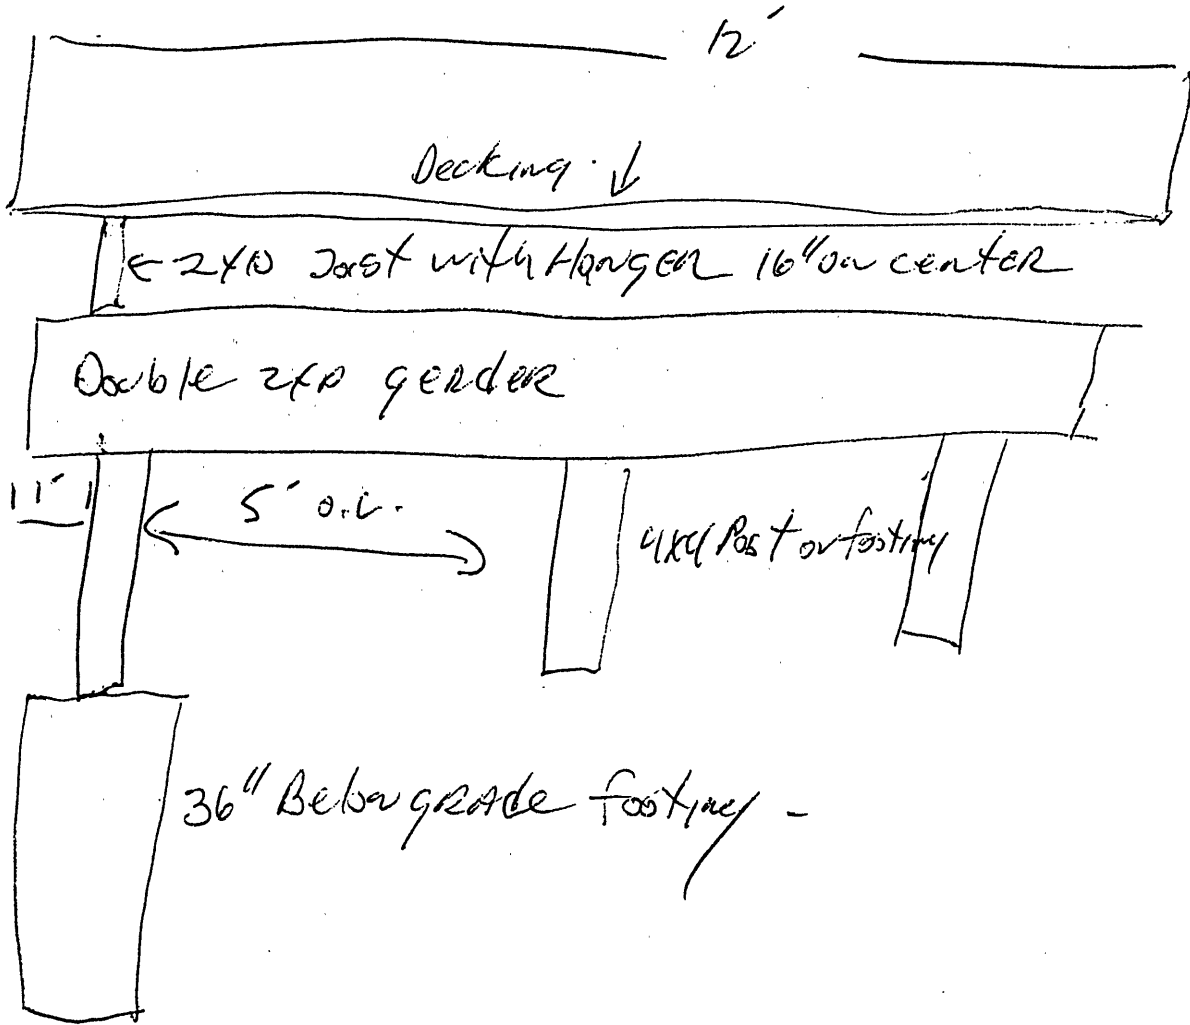 12'
Decking
← 2x10 Joist with Hanger 16" on center
Double 2x10 gerder
1'
5' o.c.
4x4 Post on footing
36" Below grade footing -